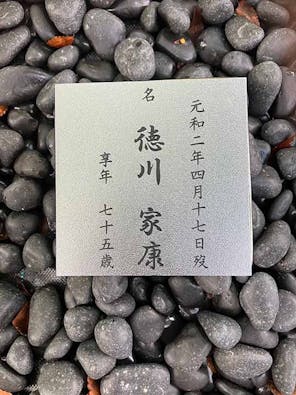 元和二年四月十七日歿
名
徳川 家康
享年 七十五歳